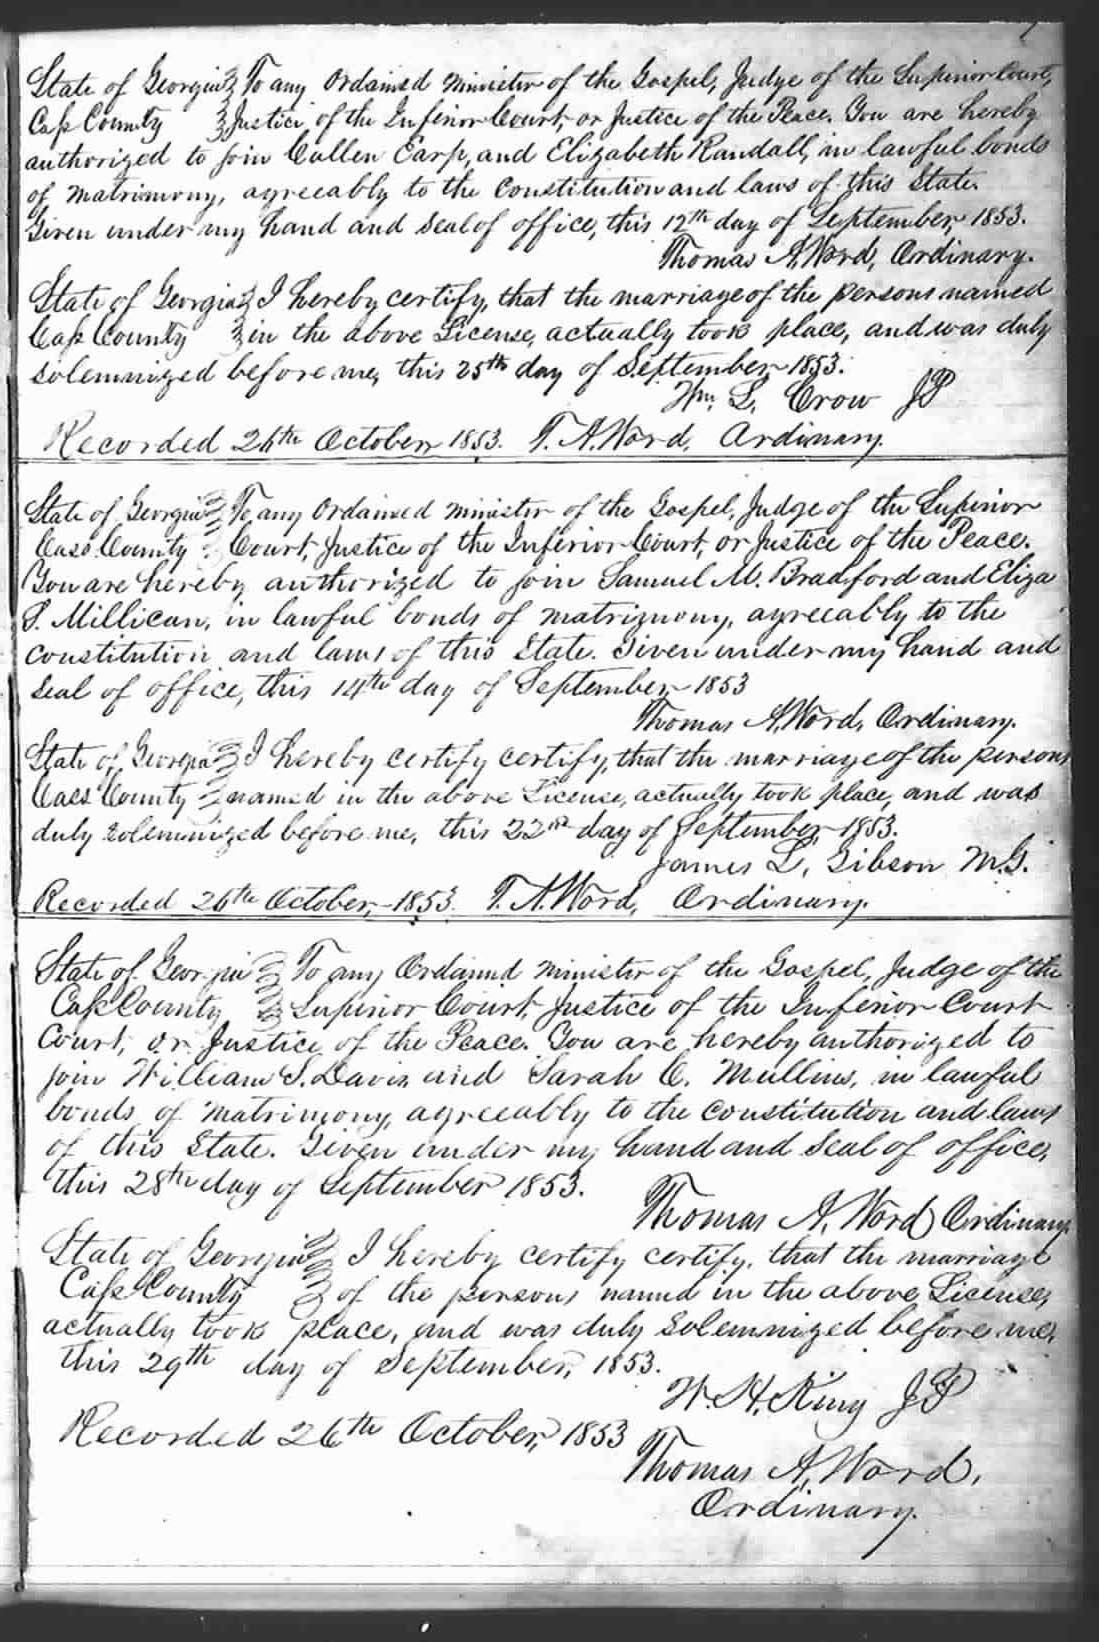 State of Georgia } To any Ordained Minister of the Gospel, Judge of the Superior Court,
Cass County } Justice of the Inferior Court, or Justice of the Peace. You are hereby
authorized to join Cullen Earp, and Elizabeth Randall, in lawful bonds
of matrimony, agreeably to the constitution and laws of this State.
Given under my hand and seal of office, this 12th day of September, 1853.
Thomas A. Word, Ordinary.
State of Georgia } I hereby certify, that the marriage of the persons named
Cass County } in the above License, actually took place, and was duly
solemnized before me, this 25th day of September 1853.
Wm. L. Crow JP
Recorded 26th October, 1853. T. A. Word, Ordinary.
State of Georgia } To any Ordained minister of the Gospel, Judge of the Superior
Cass County } Court, Justice of the Inferior Court, or Justice of the Peace.
You are hereby authorized to join Samuel M. Bradford and Eliza
S. Millican, in lawful bonds of matrimony, agreeably to the
constitution and laws of this State. Given under my hand and
seal of office, this 14th day of September 1853
Thomas A. Word, Ordinary.
State of Georgia } I hereby certify certify, that the marriage of the persons
Cass County } named in the above License, actually took place, and was
duly solemnized before me, this 22nd day of September, 1853.
James L. Gibson M.G.
Recorded 26th October, 1853. T. A. Word, Ordinary.
State of Georgia } To any Ordained minister of the Gospel, Judge of the
Cass County } Superior Court, Justice of the Inferior Court
Court, or Justice of the Peace. You are hereby authorized to
join William S. Davis and Sarah C. Mullins, in lawful
bonds of matrimony, agreeably to the constitution and laws
of this State. Given under my hand and seal of office,
this 28th day of September 1853.
Thomas A. Word, Ordinary
State of Georgia } I hereby certify certify, that the marriage
Cass County } of the persons named in the above License,
actually took place, and was duly solemnized before me,
this 29th day of September, 1853.
W. H. King JP
Recorded 26th October, 1853
Thomas A. Word,
Ordinary.